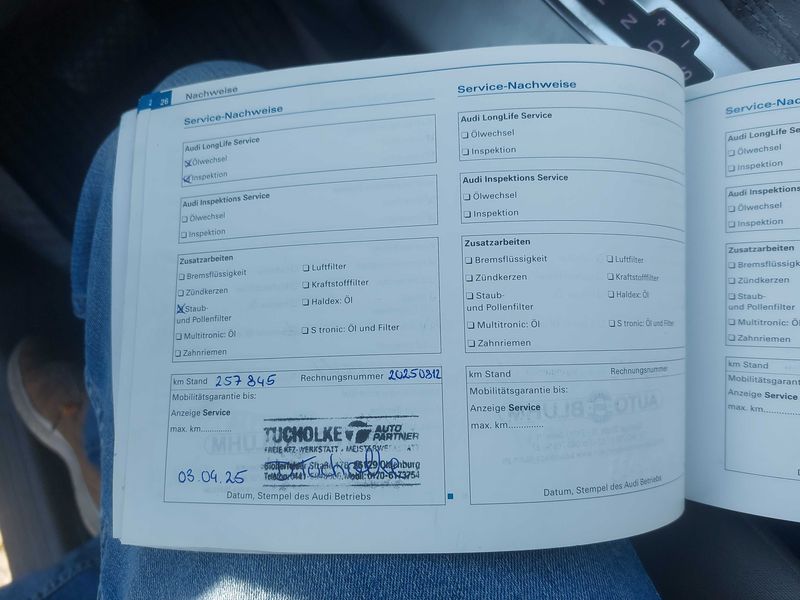 N
D
S
+
−
2 26
Nachweise
Service-Nachweise
Audi LongLife Service
Ölwechsel
Inspektion
Audi Inspektions Service
Ölwechsel
Inspektion
Zusatzarbeiten
Bremsflüssigkeit
Luftfilter
Zündkerzen
Kraftstofffilter
Staub-
und Pollenfilter
Haldex: Öl
Multitronic: Öl
S tronic: Öl und Filter
Zahnriemen
km Stand 257845 Rechnungsnummer 20250312
Mobilitätsgarantie bis:
Anzeige Service
max. km.............
TUCHOLKE AUTO
PARTNER
FREIE KFZ-WERKSTATT - MEISTERBETRIEB
Straße 26129 Oldenburg
0170-6173754
03.04.25
Datum, Stempel des Audi Betriebs
Service-Nachweise
Audi LongLife Service
Ölwechsel
Inspektion
Audi Inspektions Service
Ölwechsel
Inspektion
Zusatzarbeiten
Bremsflüssigkeit
Luftfilter
Zündkerzen
Kraftstofffilter
Staub-
und Pollenfilter
Haldex: Öl
Multitronic: Öl
S tronic: Öl und Filter
Zahnriemen
km Stand Rechnungsnummer
Mobilitätsgarantie bis:
Anzeige Service
max. km.............
Datum, Stempel des Audi Betriebs
Service-Na
Audi LongLife Se
Ölwechsel
Inspektion
Audi Inspektions
Ölwechsel
Inspektion
Zusatzarbeiten
Bremsflüssigk
Zündkerzen
Staub-
und Pollenfilte
Multitronic: Ö
Zahnriemen
km Stand
Mobilitätsgaran
Anzeige Service
max. km............
D